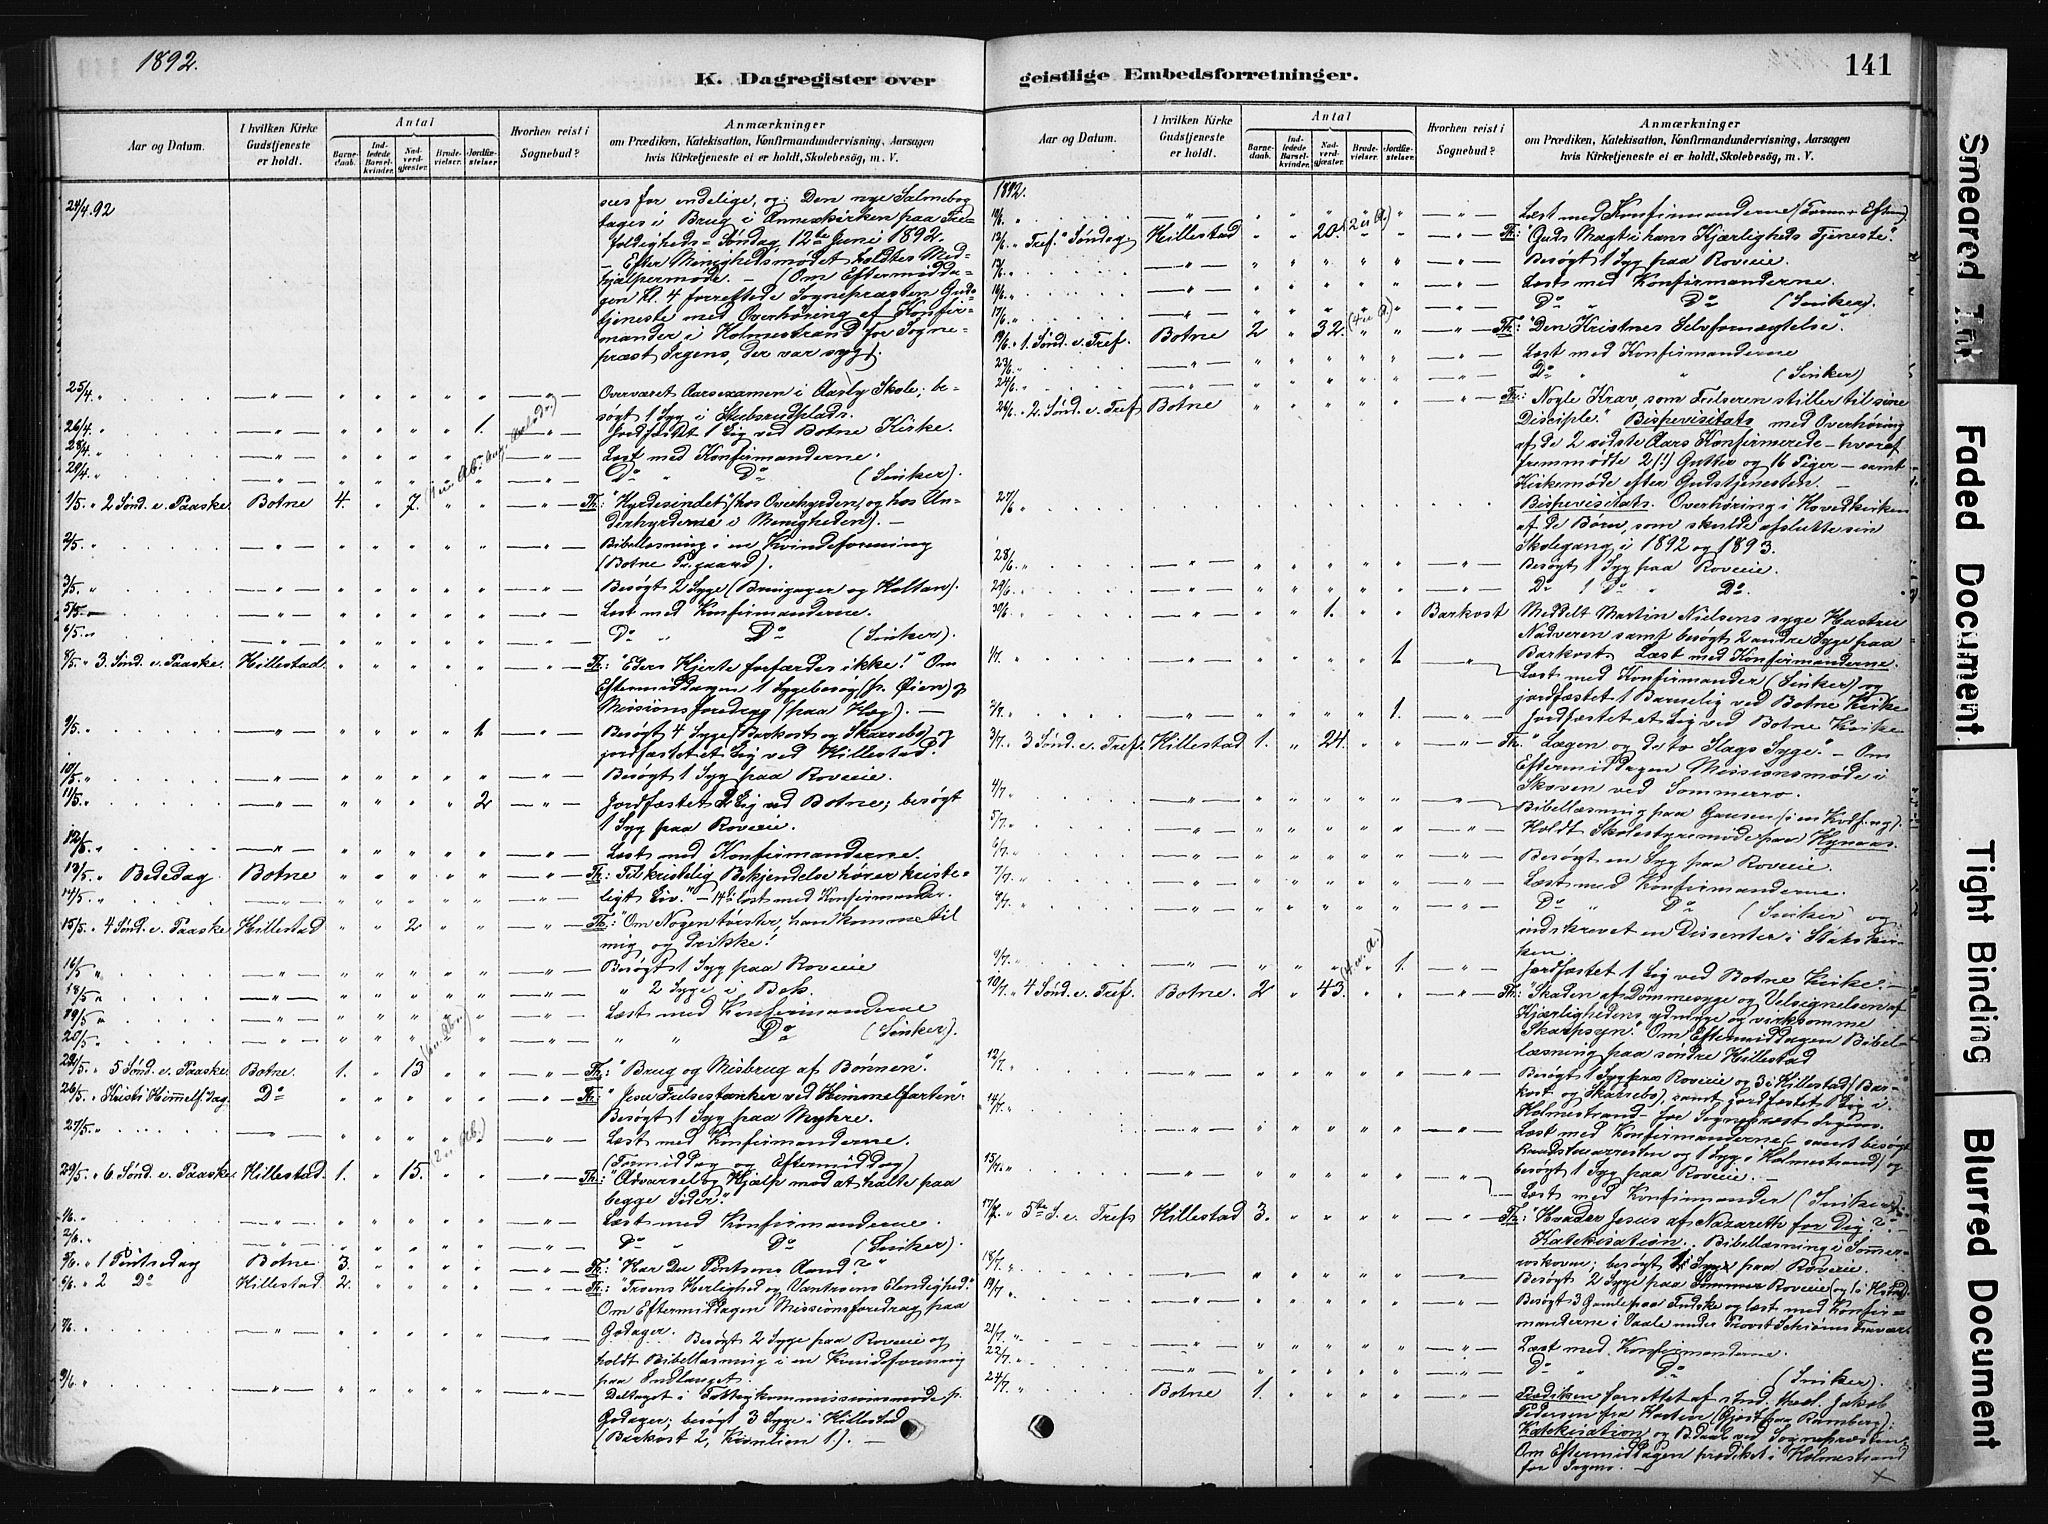 1892.
K. Dagregister over
Aar og Datum.
I hvilken Kirke Gudstjeneste er holdt.
Antal
Barnedaab.
Indledede Barselkvinder.
Nadverdgjæster.
Brudevielser.
Jordfæstelser.
Hvorhen reist i Sognebud?
Anmærkninger
om Prædiken, Katekisation, Konfirmandundervisning, Aarsagen
hvis Kirketjeneste ei er holdt, Skolebesög, m. V.
24/4.92 sees for endelige, og: Den nye Salmebog
tages i Brug i Annexkirken paa Tre-
foldigheds-Søndag, 12te Juni 1892.
— Efter Menighedsmødet holdtes Med-
hjælpermøde. — Om Eftermidda-
gen Kl. 4 forrettede Sognepræsten Guds-
tjeneste med Overhøring af Konfir-
mander i Holmestrand for Sogne-
præst Irgens, der var syg.
25/4. " Overværet Aarsexamen i Aasly Skole; be-
søgt 1 Syg i Stubsrudplads.
26/4. " 1. Jordfæstet 1 Lig ved Botne Kirke.
28/4. " Læst med Konfirmanderne.
29/4. " Do " Do (Sinker).
1/5. " 2 Sønd. e. Paaske. Botne 4. " 7. Th: "Hyrdesindet" (hos Overhyrden, og hos Un-
derhyrderne i Menigheden). —
2/5. " Bibellæsning i en Kvindeforening
(Botne Prgaard).
3/5. " Besøgt 2 Syge (Bruigager og Holtan).
5/5. — Læst med Konfirmanderne.
6/5. " Do " Do (Sinker).
8/5. " 3. Sønd. e. Paaske. Hillestad. Th: "Eders Hjerte forfærdes ikke!" Om
Eftermiddagen 1 Sygebesøg (p. Øien) og
Missionsforedrag (paa Hæg). —
9/5. " 1. Besøgt 4 Syge (Barkosts og Skarrebo) og
jordfæstet et Lig ved Hillestad.
10/5. " Besøgt 1 Syg paa Roveie.
11/5. " 2 Jordfæstet 2 Lig ved Botne; besøgt
1 Syg paa Roveie.
12/5. " Læst med Konfirmanderne.
13/5. " Bededag Botne Th: Til kristelig Bekjendelse hører kriste-
14/5. " ligt Liv." — 14de læst med Konfirmander.
15/5. " 4 Sønd. e. Paaske. Hillestad 2 Th: "Om Nogen tørster, han komme til
mig og drikke!
16/5 " Besøgt 1 Syg paa Roveie
18/5 " " 2 Syge i Bok.
19/5 " Læst med Konfirmanderne
20/5. " " " Do (Sinker).
22/5. " 5 Sønd. e. Paaske. Botne. 1. " 13 Th: "Brug og Misbrug af Bønnen".
26/5. " Kristi Himmelf. dag Do Th: "Jesu Frelsestanker ved Himmelfarten"
Besøgt 1 Syg paa Myhre.
27/5. " Læst med Konfirmanderne.
(Formiddag og Eftermiddag)
29/5. " 6 Sønd. e. Paaske. Hillestad. 1. " 15. Th: "Advarsel og Hjælp mod at halte paa
begge Sider".
1/6. " Læst med Konfirmanderne.
2/6. " Do " Do (Sinker).
5/6. " 1 Pintsedag Botne. 3. Th: "Har Du Pintsens Aand?"
6/6. " 2 Do Hillestad 2. Th: "Troens Herlighed og Vantroens Elendighed".
Om Eftermiddagen Missionsforedrag paa
Godager. Besøgt 2 Syge paa Roveie og
7/6. " holdt Bibellæsning i en Kvindeforening
paa Indlauget.
9/6. " Deltaget i Fattigkommissionsmøde p.
Godager; besøgt 3 Syge i Hillestad
(Barkost 2, Kronlien 1.). —
geistlige Embedsforretninger.
141
Aar og Datum.
I hvilken Kirke Gudstjeneste er holdt.
Antal
Barnedaab.
Indledede Barselkvinder.
Nadverdgjæster.
Brudevielser.
Jordfæstelser.
Hvorhen reist i Sognebud?
Anmærkninger
om Prædiken, Katekisation, Konfirmandundervisning, Aarsagen
hvis Kirketjeneste ei er holdt, Skolebesög, m. V.
1892.
10/6. " Læst med Konfirmanderne (Form. + Efterm.)
12/6. " Tref. " Søndag Hillestad 20. (2 u A.) Th: "Guds Magt i hans Kjærligheds Tjeneste."
Besøgt 1 Syg paa Roveie.
16/6. " Læst med Konfirmanderne.
17/6. " Do " Do (Sinker).
19/6. " 1 Sønd. e. Tref. Botne 2 " 32. (4 u A.) Th: "Den Kristnes Selvfornægtelse."
23/6. " Læst med Konfirmanderne
24/6. " Do " " (Sinker)
26/6. " 2. Sønd. e. Tref Botne Th: Nogle Krav, som Frelseren stiller til sine
Disciple." Bispevisitats med Overhøring
af de 2 sidste Aars Konfirmerede — hvoraf
fremmødte 2 (!) Gutter og 16 Piger — samt
Kirkemøde efter Gudstjenesten. —
27/6. " Bispevisitats. Overhøring i Hovedkirken
af de Børn, som skulde afslutte sin
Skolegang i 1892 og 1893.
28/6. " Besøgt 1 Syg paa Roveie.
29/6. " Do 1 Do " Do.
30/6. " 1. Barkost Meddelt Martin Nielsens syge Hustru
Nadveren samt besøgt 2 andre Syge paa
Barkost. Læst med Konfirmanderne.
1/7. " 1 Læst med Konfirmander (Sinker) og
jordfæstet 1 Barnelig ved Botne Kirke
2/7. " 1. Jordfæstet et Lig ved Botne Kirke.
3/7. " 3 Sønd. e. Tref. Hillestad 1. " 24. Th: "Lægen og de to Slags Syge." — Om
Eftermiddagen Missionsmøde i
Skoven ved Sommerro.
4/7. " Bibellæsning paa Gausen (i en Kvdfng).
5/7. " Holdt Skolestyremøde paa Hynaas.
6/7. " Besøgt en Syg paa Roveie.
7/7. " Læst med Konfirmanderne.
8/7. " Do " Do (Sinker) og
indskrevet en Dissenter i Statskir-
ken.
9/7. " 1. Jordfæstet 1 Lig ved Botne Kirke. —
10/7. " 4 Sønd. e. Tref. Botne. 2 " 43. (4 u. A.) Th: "Skaden af Dømmesyge og Velsignelsen af
Kjærlighedens ydmyge og virksomme
Skarpsyn." Om Eftermiddagen Bibel-
læsning paa søndre Hillestad
12/7. " Besøgt 1 Syg paa Roveie og 3 i Hillestad (Bar-
kost og Skarrebo), samt jordfæstet 1 Lig i
Holmestrand for Sognepræst Irgens.
14/7. " Læst med Konfirmanderne (— samt besøgt
Raadstuarresten og 1 Syg i Holmestrand) og
15/7. " besøgt 1 Syg paa Roveie. —
Læst med Konfirmander (Sinker).
17/7. " 5te S. e. Tref. Hillestad 3. Th: "Hvad er Jesus af Nazareth for Dig?"
Katekisation. Bibellæsning i Sommer-
roskoven; besøgt 1 Syg paa Roveie.
18/7. " Besøgt 2 Syge paa Roveie (og 1 i Hstrd).
19/7. " Besøgt 3 Gamle paa Fudske og læst med Konfir-
manderne i Vaale under Provst Schiørns Fravær.
21/7. " Læst med Konfirmanderne.
22/7. " Do " Do (Sinker).
24/7. " Botne 1. Prædiken forrettet af Ind. theol. Jakob
Pedersen fra Horten (Gjest paa Ramberg);
Katekisation og B.daab ved Sognepræsten.
Om Eftermiddagen prædiket i Holmestrand
for Irgens. —
Smeared Ink
Faded Document
Tight Binding
Blurred Document